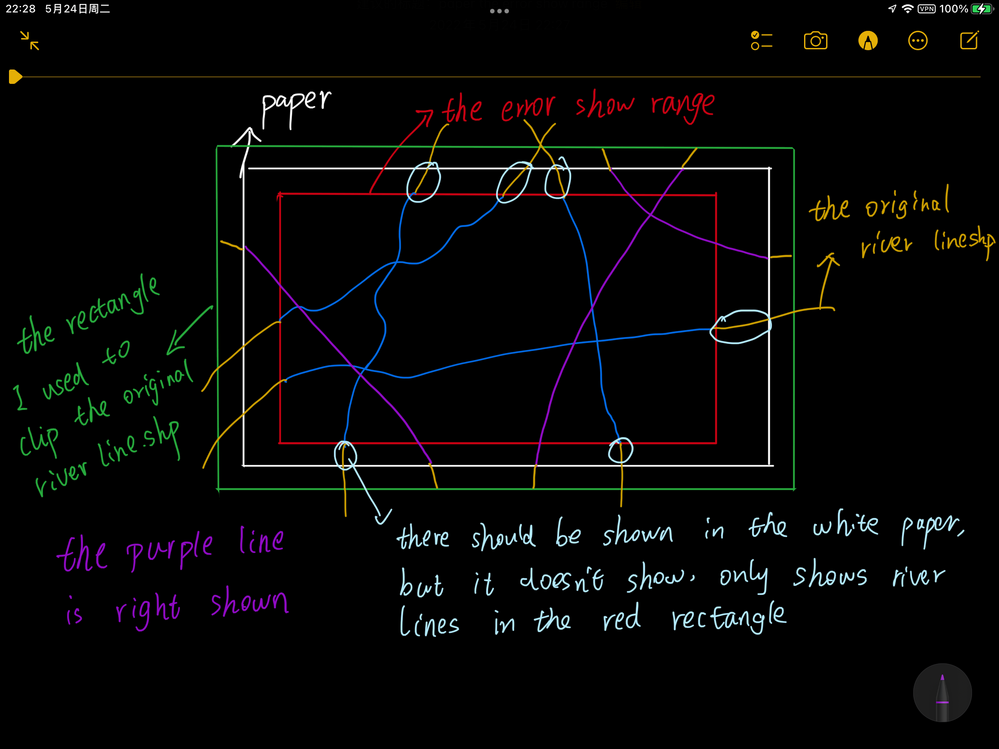 22:28 5月24日周二
VPN 100%
paper
the error show range
the original
river lineshp
the rectangle
I used to
clip the original
river line.shp
the purple line
is right shown
there should be shown in the white paper,
but it doesn't show. only shows river
lines in the red rectangle